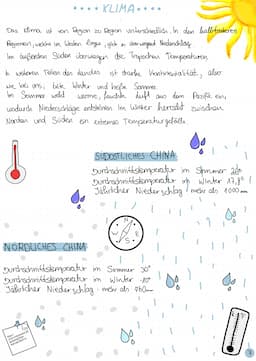 KLIMA
Das Klima ist von Region zu Region unterschiedlich. In den
Regionen, welche im Westen liegen, gibt es überwiegend Niederschlag.
Im äußersten Süden überwiegen die Tropischen Temperaturen.
In weiteren Teilen des Landes ist starke Kontinentalität, also
wie bei uns, kalte Winter und heiße Sommer.
Im Sommer wird warme, feuchte Luft aus dem Pazifik ein,
wodurch Niederschläge entstehen. Im Winter herrscht zwischen
Norden und Süden ein extremes Temperaturgefälle.
SÜDÖSTLICHES CHINA
Durchschnittstemperatur im Sommer
Durchschnittstemperatur im Winter
Jährlicher Niederschlag: mehr als 1000 mm
NÖRDLICHES CHINA
Durchschnittstemperatur im Sommer 30°
Durchschnittstemperatur im Winter -10°
Jährlicher Niederschlag: mehr als